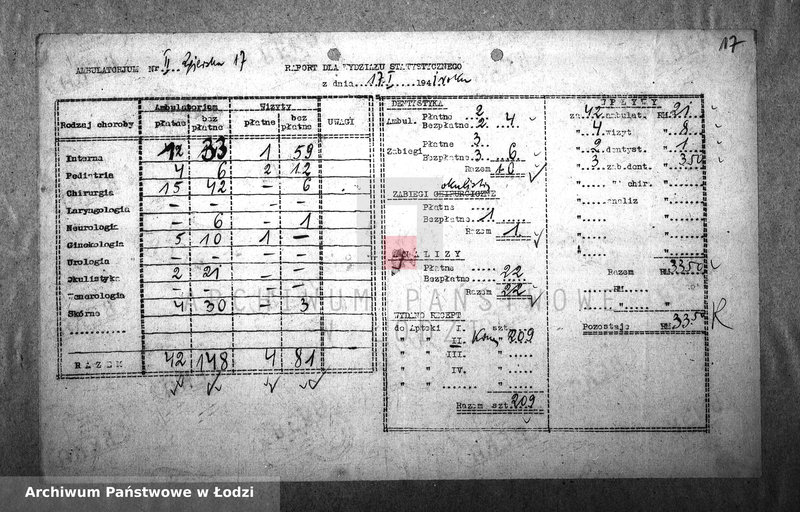 17
AMBULATORJUM Nr II Zgierska 17
RAPORT DLA WYDZIAŁU STATYSTYCZNEGO
z dnia 17.I 1941 roku
Rodzaj choroby Ambulatorjum Wizyty UWAGI
płatne bez płatne płatne bez płatne
Interna 12 33 1 59
Pediatria 4 6 2 12
Chirurgia 15 42 - 6
Laryngologia - - - -
Neurologia - 6 - 1
Ginekologia 5 10 1 -
Urologia - - - -
Okulistyka 2 21 - -
Wenerologia - - - -
Skórne 4 30 - 3
RAZEM 42 148 4 81
DENTYSTYKA
Ambul. Płatne 2
Bezpłatne 2 4
Zabiegi Płatne 3
Bezpłatne 3 6
Razem 10
okulisty
ZABIEGI CHIRURGICZNE
Płatne
Bezpłatne 1
Razem 1
ANALIZY
Płatne
Bezpłatne 22
Razem 22
WYDANO RECEPT
do Apteki I. szt
" " II. " 209
" " III. "
" " IV. "
" " "
Razem szt. 209
WPŁYWY
za 42 ambulat. RM. 21
" 4 wizyt " 8
" 2 dentyst. " 1
" 3 zab.dent. " 3.50
" " chir. "
" analiz "
Razem RM. 33.50
Pozostaje RM. 33.50
R
ARCHIWUM PAŃSTWOWE
W ŁODZI
Archiwum Państwowe w Łodzi